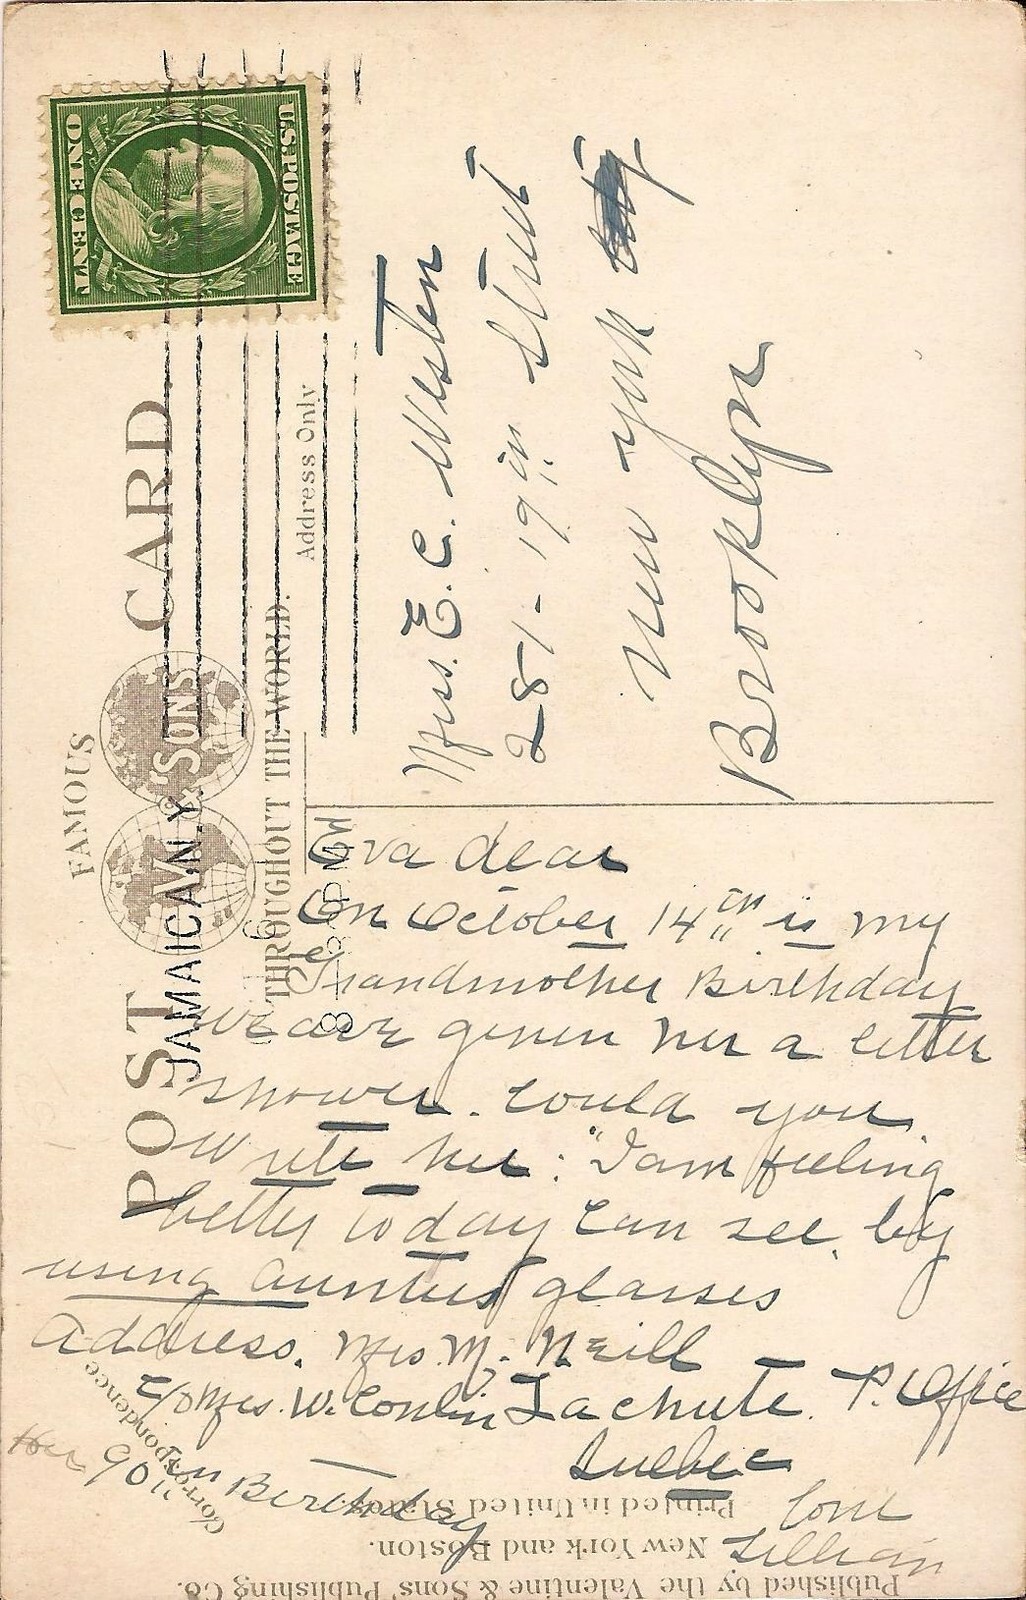 U.S. POSTAGE
ONE CENT
FAMOUS
POST CARD
V. & SONS
THROUGHOUT THE WORLD.
JAMAICA, N.Y.
Address Only
Mrs. E. C. Westen
281-19th Street
New York
Brooklyn
Eva dear
On October 14th is my
Grandmother Birthday
We are given her a letter
shower. Could you
write her: "I am feeling
better today can see by
using aunties glasses
Address. Mrs. M. Neill
c/o Mrs. W. Conlin Lachute. P. Office
Quebec
her 90th Birthday
love
Lillian
Correspondence
Printed in United States.
New York and Boston.
Published by the Valentine & Sons' Publishing Co.